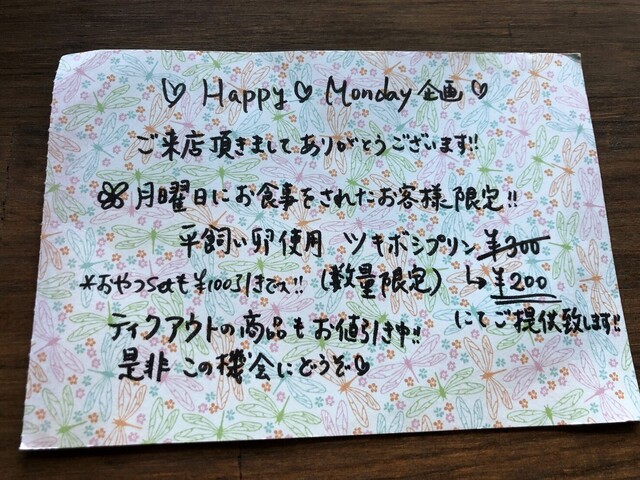 ♡ Happy ♡ Monday 企画 ♡
ご来店頂きましてありがとうございます!!
月曜日にお食事をされたお客様限定!!
平飼い卵使用 ツキボシプリン ¥300
*おやつsetも¥100引きです!! (数量限定) ↳ ¥200
にてご提供致します!!
テイクアウトの商品もお値引き中!!
是非この機会にどうぞ♡